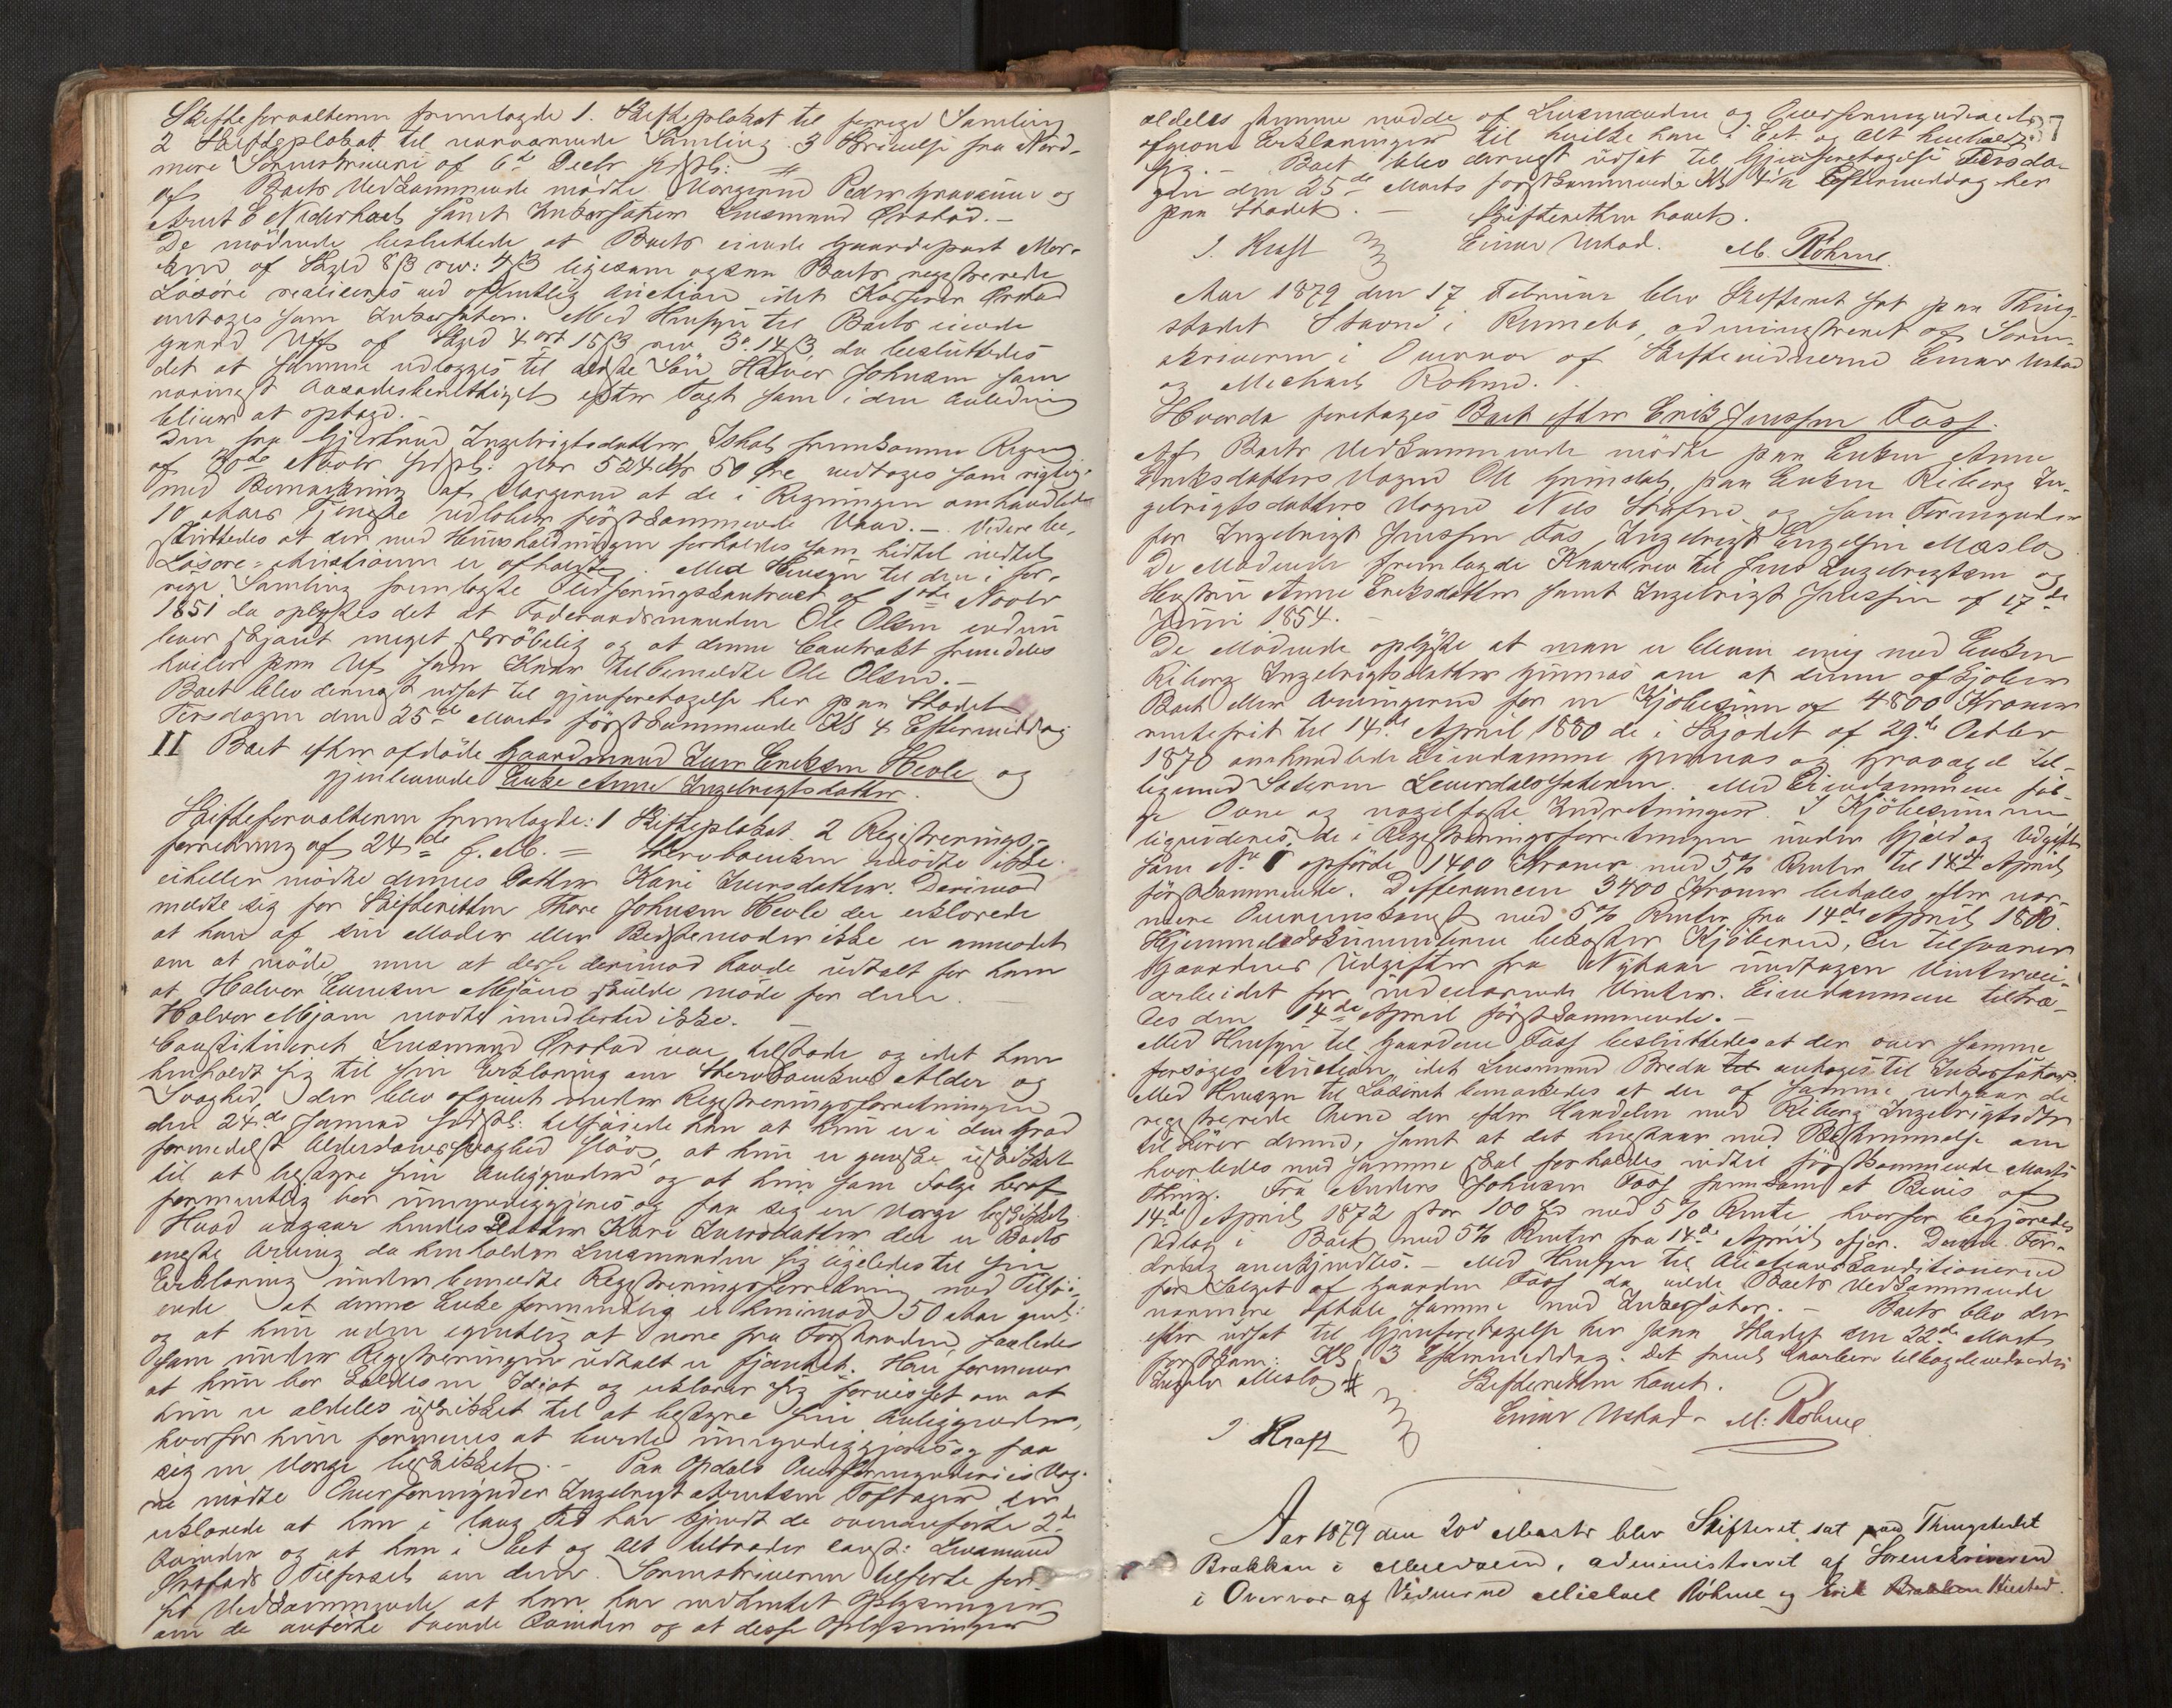 Skifteforvalteren fremlagde 1. Skifteplakat til forrige Samling
2 Skifteplakat til nærværende Samling 3 Skrivelse fra Nord-
møre Sorenskriveri af 6te Decbr sidstl:
Af Boets Vedkommende mødte Værgerne Peder Gravaune og
samt Inkassator Lensmand Ørstad.-
De mødende besluttede at Boets eiende Gaardepart Mer-
af Skyld 8 β rev: 4 β ligesom ogsaa Boets registrerede
Løsøre realiseres ved offentlig Auction idet Kasserer Ørstad
antages som Inkassator. Med Hensyn til Boets eiende
gaard Uf af Skyld 4 ort 15 β rev 3 o. 14 β, da besluttedes
det at samme udlægges til ældste Søn Halvor Johnsen som
nærmest Aasædesberettiget efter Taxt som i den Anledning
bliver at optage.-
Den fra Gjertrud Ingebrigtsdatter fremkomne Regning
af 30de Novbr sidstl: stor 524 Kr 50 Øre vedtoges som rigtig
med Bemærkning af Værgerne at de i Regningen omhandlede
10 Aars Tjeneste udløber førstkommende Vaar.- Videre be-
sluttedes at der med Huusholdningen forholdes som hidtil indtil
Løsøre-Auctionen er afholdt. Med Hensyn til den i for-
rige Samling fremlagte Fledføringskontract af 1ste Novbr
1851 da oplystes det at Føderaadsmanden Ole Olsen endnu
lever skjønt meget skrøbelig og at denne Contrakt fremdeles
hviler paa Uf som Kaar til bemeldte Ole Olsen.-
Boet blev dernæst udsat til gjenforetagelse her paa Stedet
Tirsdagen den 25de Marts førstkommende Kl 4 Eftermiddag
II Boet efter afdøde Gaardmand Iver Eriksen Hevle og
gjenlevende Enke Anne Ingebrigtsdatter.
Skifteforvalteren fremlagde: 1 Skifteplakat. 2 Registrerings-
forretning af 24de f. M. = Stervboenken mødte ikke
eiheller mødte dennes Datter Kari Iversdatter. Derimod
meldte sig for Skifteretten Thore Johnsen Hevle der erklærede
at han af sin Moder eller Bedstemoder ikke er anmodet
om at møde, men at disse derimod havde udtalt for ham
at Halvor Mjøen skulde møde for dem.
Halvor Mjøen mødte imidlertid ikke.
Constitueret Lensmand Ørstad var tilstede og idet han
henholdt sig til sin Erklæring om Stervboenkens Alder og
Svaghed, der blev afgivet under Registreringsforretningen
den 24de Januar sidstl: tilføiede han at hun er i den Grad
formedelst Alderdomssvaghed sløv, at hun er ganske uskikket
til at bestyre sine Anliggender og at hun som Følge heraf
formentlig bør umyndiggjøres og faa sig en Værge beskikket.
Hvad angaar hendes Datter Kari Iversdatter der er Boets
eneste Arving da henholder Lensmanden sig ligeledes til sin
Erklæring under bemeldte Registreringsforretning med Tilføi-
ende at denne Enke formentlig er henimod 50 Aar gml:
og at hun uden egentlig at være fra Forstanden, saaledes
som under Registreringen udtalt er fjantet. Han formener
at hun bør kaldes en Idiot og erklærer sig forvisset om at
hun er aldeles uskikket til at bestyre sine Anliggender,
hvorfor hun formenes at burde umyndiggjøres og faa
sig en Værge beskikket.- Paa Opdals Overformynderies Veg-
ne mødte Overformynder Ingebrigt Arntsen Toftager der
erklærede at han i lang Tid har kjendt de ovenanførte 2de
Qvinder og at han i Eet og Alt tiltræder const: Lensmand
Ørstads Tilførsel om dem. Sorenskriveren tilførte for
sit Vedkommende at han har indhentet Oplysninger
om de anførte tvende Qvinder og at disse Oplysninger
aldeles stemme med de af Lensmanden og Overformynderiet
afgivne Erklæringer til hvilke han i Eet og Alt henholdt
sig.- Boet blev dernæst udsat til Gjenforetagelse Tirsda-
gen den 25de Marts førstkommende Kl 4 1/2 Eftermiddag her
paa Stedet.- Skifteretten hævet.
I. Kraft Einar Ustad. M. Røhme.
Aar 1879 den 17 Februar blev Skifteret sat paa Thing-
stedet Stavne i Rennebo, administreret af Soren-
skriveren i Overvær af Skiftevidnerne Einar Ustad
og Michael Røhme.
Hvorda foretages Boet efter Erik Jenssen Foss.
Af Boets Vedkommende mødte paa Enken Anne
Eriksdatters Vegne Ole Grindal, paa Enken Riborg In-
gebrigtsdatters Vegne Nils Stafne og som Formynder
for Ingebrigt Jenssen Fos, Ingebrigt Engelsen Mæslo
De Mødende fremlagde Kaarbrev til Jens Ingebrigtsen og
Hustru Anne Eriksdatter samt Ingebrigt Jenssen af 17de
Juni 1854.
De Mødende oplyste at man er bleven enig med Enken
Riborg Ingebrigtsdatter Gunnæs om at denne afkjøber
Boet eller Arvingerne for en Kjøbesum af 4800 Kroner
rentefrit til 14de April 1880 de i Skjødet af 29de Octbr
1870 omhandlede Eiendomme Gunnæs og til-
ligemed Sæteren. Med Eiendommene føl-
ge Ovne og nagelfaste Indretninger. I Kjøbesummen
liqvideres de i Registreringsforretningen under Gjæld og Udgifter
som No 1 opførte 1400 Kroner med 5 % Renter til 14de April
førstkommende. Differancen 3400 Kroner betales efter nær-
mere Overenskomst med 5 % Renter fra 14de April 1880.
Hjemmelsdokumenterne bekoster Kjøberen, der tilsvarer
Gaardenes Udgifter fra Nytaar undtagen Vintervei-
arbeidet for indeværende Vinter. Eiendommene tiltræ-
des den 14de April førstkommende.-
Med Hensyn til Gaarden Foss besluttedes at der over samme
forsøges Auction, idet Lensmand Breda antages til Inkassator.
Med Hensyn til Løsøret bemærkedes at der af samme udgaar de
registrerede Ovne der efter Handelen med Riborg Ingebrigtsdtr
tilhører denne, samt at det henstaar med Bestemmelse om
hvorledes med samme skal forholdes indtil førstkommende Marts
Thing. Fra Anders Johnsen Foss fremkom et Bevis af
14de April 1872 stor 100 Spd med 5 % Rente hvorfor begjæredes
Udlæg i Boet med 5 % Renter fra 14de April ifjor. Denne For-
dring anerkjendtes.- Med Hensyn til Auctionskonditionerne
for Salget af Gaarden Foss da ville Boets Vedkommende
nærmere aftale samme med Inkassator.- Boet blev der
efter udsat til Gjenforetagelse her paa Stedet den 22de Marts
førstkom: Kl. 3 Eftermiddag. Det freml Kaarbrev tilbagelevertes
Ingebr Mæslo Skifteretten hævet.
I Kraft Einar Ustad - M: Røhme
Aar 1879 den 20de Marts blev Skifteret sat paa Thingstedet
Brækken i Meldalen, administreret af Sorenskriveren
i Overvær af Vidnerne Michael Røhme og Erik